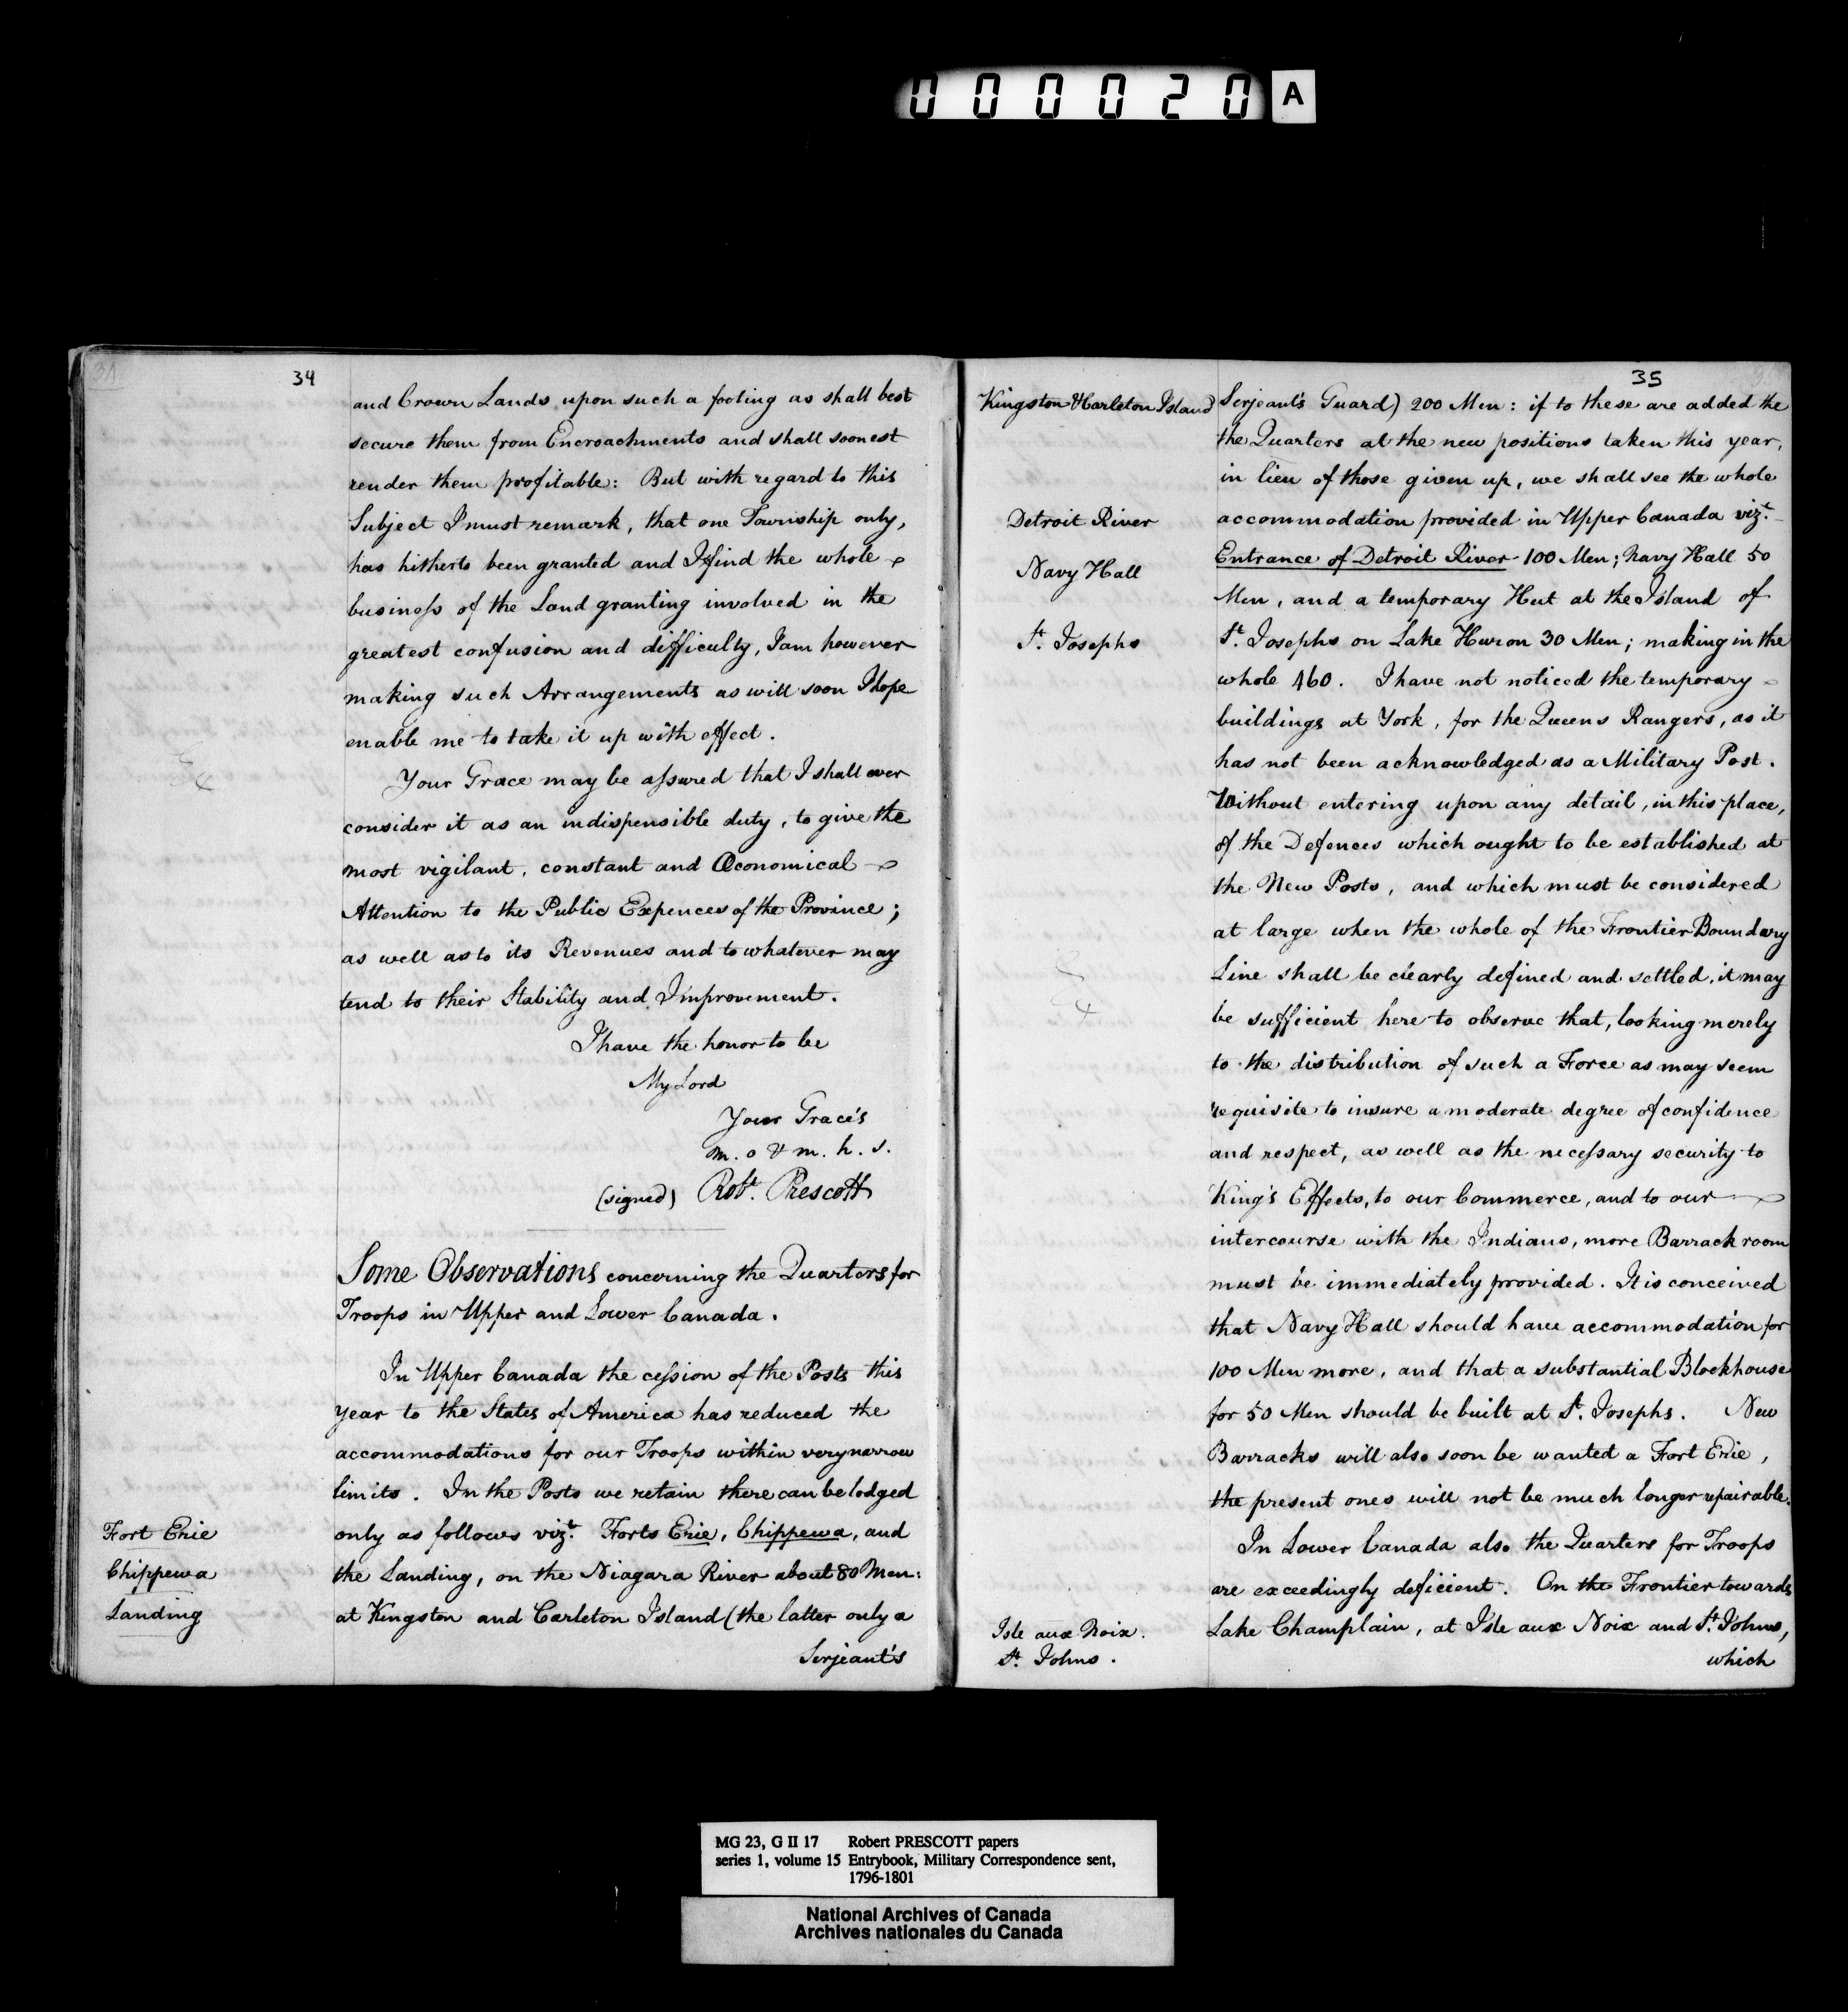 000020 A
34
and Crown Lands upon such a footing as shall best
secure them from Encroachments and shall soonest
render them profitable: But with regard to this
Subject I must remark, that one Township only,
has hitherto been granted and I find the whole
business of the Land granting involved in the
greatest confusion and difficulty, I am however
making such Arrangements as will soon I hope
enable me to take it up with effect.
Your Grace may be assured that I shall ever
consider it as an indispensible duty, to give the
most vigilant, constant and Œconomical
Attention to the Public Expences of the Province;
as well as to its Revenues and to whatever may
tend to their Stability and Improvement.
I have the honor to be
My Lord
Your Grace's
m. o & m. h. s.
(signed) Robt. Prescott
Some Observations concerning the Quarters for
Troops in Upper and Lower Canada.
In Upper Canada the cession of the Posts this
year to the States of America has reduced the
accommodations for our Troops within very narrow
limits. In the Posts we retain there can be lodged
Fort Erie
only as follows vizt. Forts Erie, Chippewa, and
Chippewa
the Landing, on the Niagara River about 80 Men:
Landing
at Kingston and Carleton Island (the latter only a
Serjeant's
35
Kingston & Carleton Island
Serjeant's Guard) 200 Men: if to these are added the
the Quarters at the new positions taken this year,
in lieu of those given up, we shall see the whole
Detroit River
accommodation provided in Upper Canada vizt.
Navy Hall
Entrance of Detroit River 100 Men; Navy Hall 50
Men, and a temporary Hut at the Island of
St. Josephs
St. Josephs on Lake Huron 30 Men; making in the
whole 460. I have not noticed the temporary
buildings at York, for the Queens Rangers, as it
has not been acknowledged as a Military Post.
Without entering upon any detail, in this place,
of the Defences which ought to be established at
the New Posts, and which must be considered
at large when the whole of the Frontier Boundary
Line shall be clearly defined and settled, it may
be sufficient here to observe that, looking merely
to the distribution of such a Force as may seem
requisite to insure a moderate degree of confidence
and respect, as well as the necessary security to
King's Effects, to our Commerce, and to our
intercourse with the Indians, more Barrack room
must be immediately provided. It is conceived
that Navy Hall should have accommodation for
100 Men more, and that a substantial Blockhouse
for 50 Men should be built at St. Josephs. New
Barracks will also soon be wanted a Fort Erie,
the present ones will not be much longer repairable.
In Lower Canada also the Quarters for Troops
are exceedingly deficient. On the Frontier towards
Isle aux Noix.
Lake Champlain, at Isle aux Noix and St. Johns,
St. Johns.
which
MG 23, G II 17 Robert PRESCOTT papers
series 1, volume 15 Entrybook, Military Correspondence sent,
1796-1801
National Archives of Canada
Archives nationales du Canada